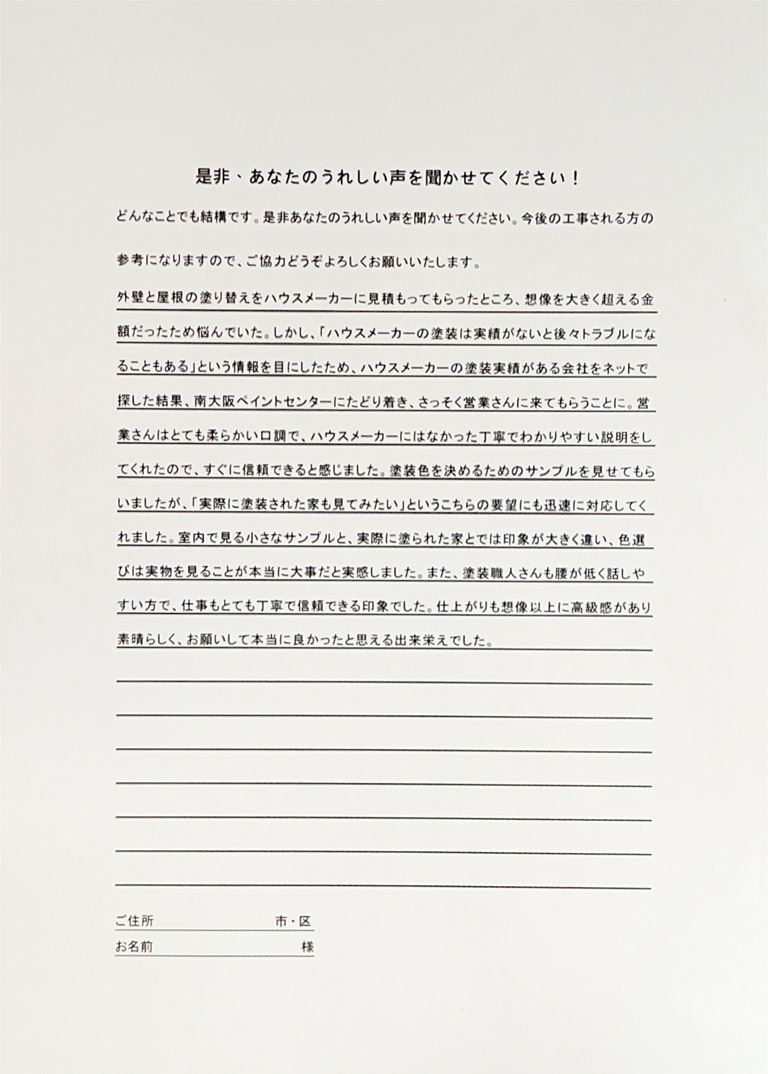 是非、あなたのうれしい声を聞かせてください！
どんなことでも結構です。是非あなたのうれしい声を聞かせてください。今後の工事される方の
参考になりますので、ご協力どうぞよろしくお願いいたします。
外壁と屋根の塗り替えをハウスメーカーに見積もってもらったところ、想像を大きく超える金
額だったため悩んでいた。しかし、「ハウスメーカーの塗装は実績がないと後々トラブルにな
ることもある」という情報を目にしたため、ハウスメーカーの塗装実績がある会社をネットで
探した結果、南大阪ペイントセンターにたどり着き、さっそく営業さんに来てもらうことに。営
業さんはとても柔らかい口調で、ハウスメーカーにはなかった丁寧でわかりやすい説明をし
てくれたので、すぐに信頼できると感じました。塗装色を決めるためのサンプルを見せてもら
いましたが、「実際に塗装された家も見てみたい」というこちらの要望にも迅速に対応してく
れました。室内で見る小さなサンプルと、実際に塗られた家とでは印象が大きく違い、色選
びは実物を見ることが本当に大事だと実感しました。また、塗装職人さんも腰が低く話しや
すい方で、仕事もとても丁寧で信頼できる印象でした。仕上がりも想像以上に高級感があり
素晴らしく、お願いして本当に良かったと思える出来栄えでした。
ご住所 市・区
お名前 様